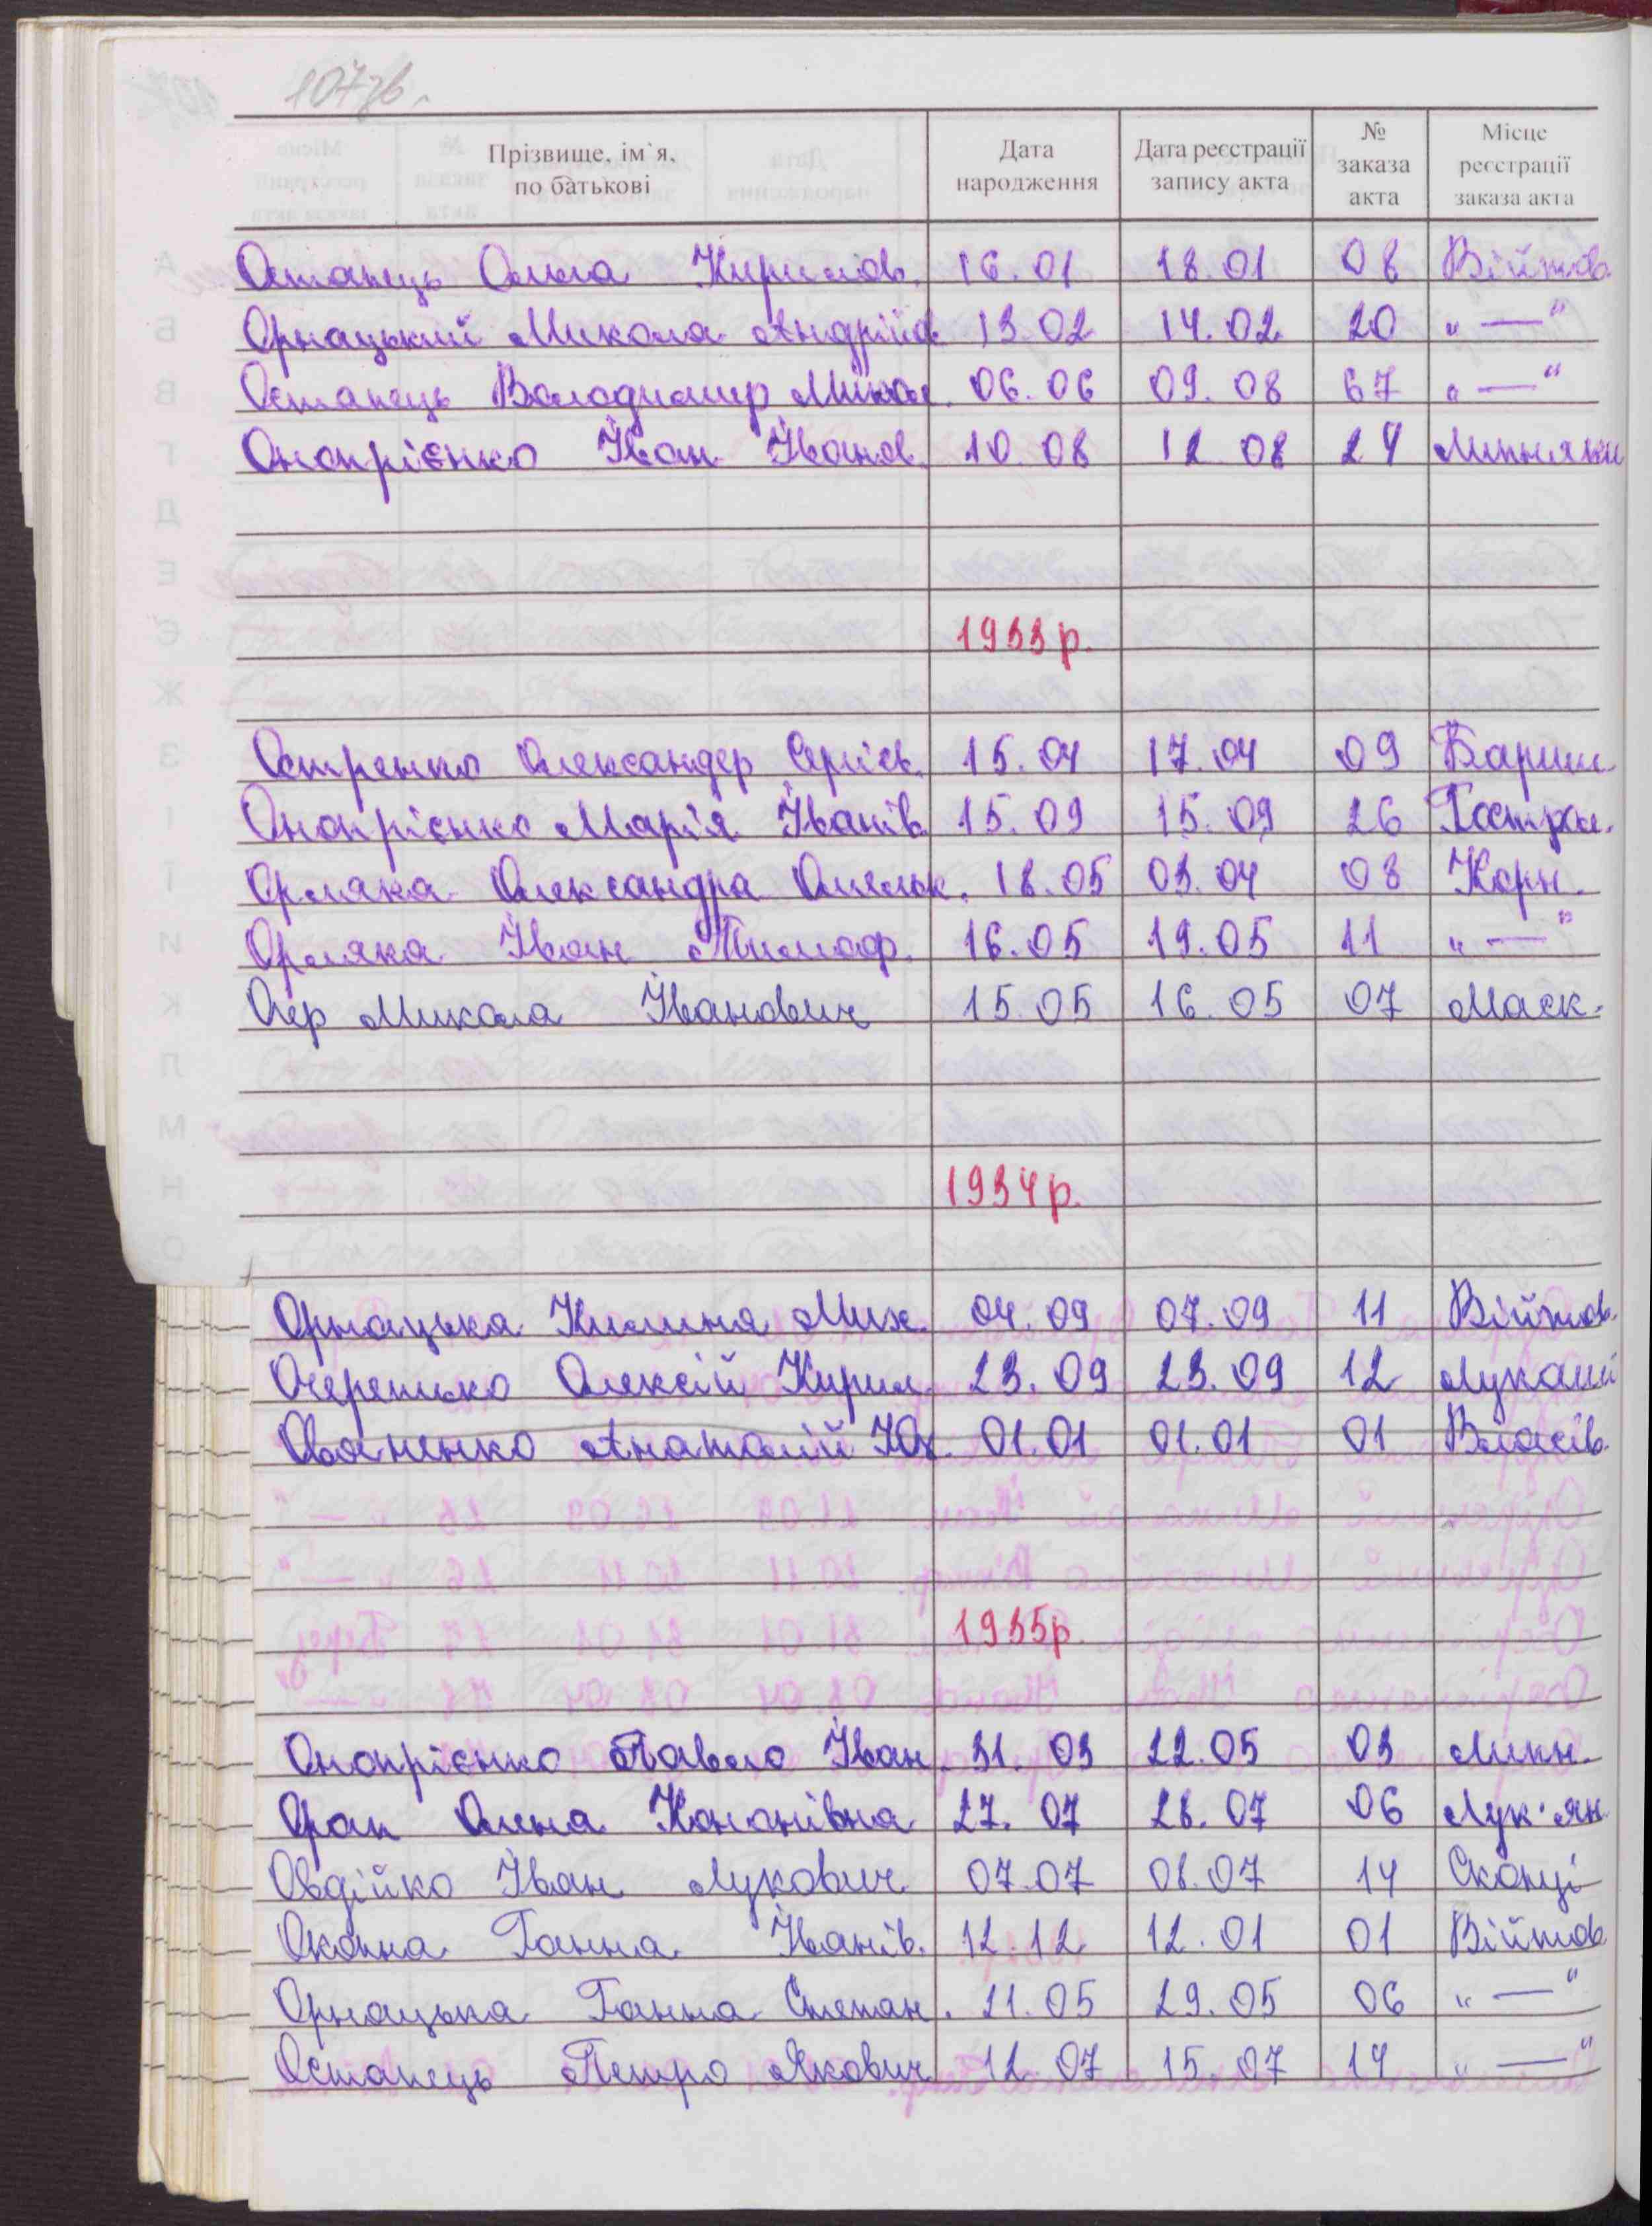 107зв.
Прізвище, ім`я, по батькові Дата народження Дата реєстрації запису акта № заказа акта Місце реєстрації заказа акта
Остапець Ольга Кирилов. 16.01 18.01 08 Війтов.
Орнацький Микола Андрійов. 13.02 14.02 20 "—"
Остапець Володимир Микол. 06.06 09.08 67 "—"
Онопрієнко Іван Іванов. 10.08 12.08 24 Липняки
1933р.
Остренко Олександр Сергієв. 15.04 17.04 09 Бариш.
Онопрієнко Марія Іванів. 15.09 15.09 26 Гостро.
Орляка Олександра Омельк. 18.05 03.04 08 Корн.
Орляка Іван Тимоф. 16.05 19.05 11 "—"
Очер Микола Іванович 15.05 16.05 07 Маск.
1934р.
Орнацька Килина Мих. 04.09 07.09 11 Війтов.
Очеретько Олексій Кирил. 23.09 23.09 12 Лукаші
Овчиненко Анатолій Юх. 01.01 01.01 01 Власів.
1935р.
Онопрієнко Павло Іван. 31.03 22.05 03 Липн.
Орап Олена Кононівна 27.07 28.07 06 Лук'ян.
Овдійко Іван Лукович 07.07 08.07 14 Скопці
Оконна Ганна Іванів. 12.12 12.01 01 Війтов.
Орнацька Ганна Степан. 21.05 29.05 06 "—"
Остапець Петро Якович 12.07 15.07 14 "—"